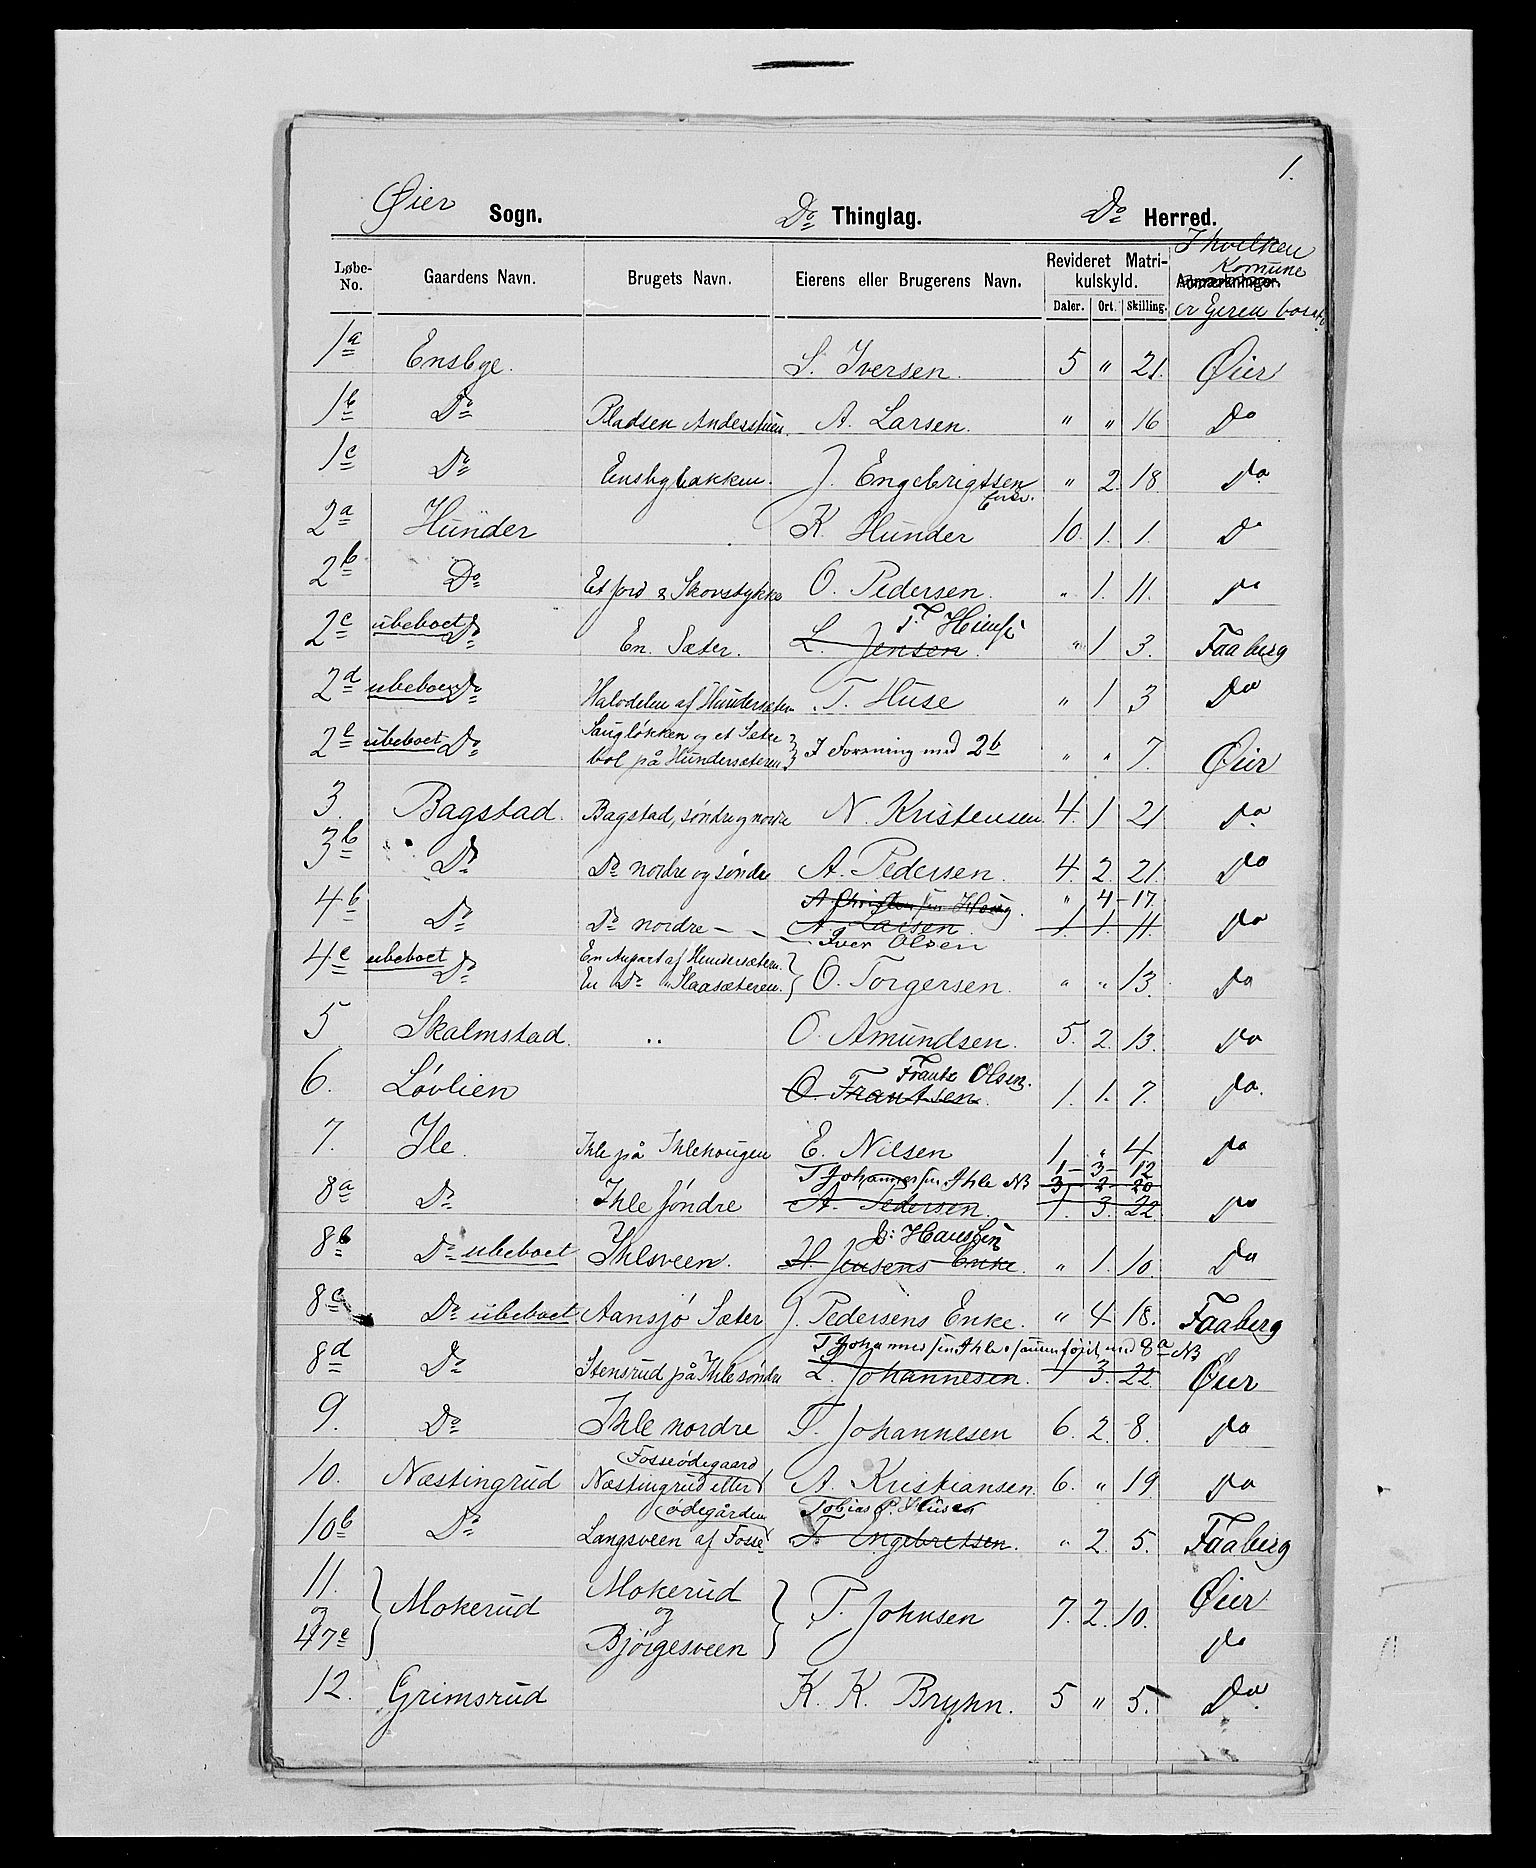 1.
Øier Sogn. Do Thinglag. Do Herred.
Løbe-No. Gaardens Navn. Brugets Navn. Eierens eller Brugerens Navn. Revideret Matrikulskyld. Daler. Ort. Skilling. Anmærkninger. I hvilken Komune er Eieren bosat
1a Ensbye. S. Iversen. 5 " 21. Øier
1b Do Pladsen Andesstuen. A. Larsen. " " 16 Do
1c Do Ensbybakken. J. Engebrigtsen Enke. " 2. 18 Do
2a Hunder K. Hunder 10. 1. 1. Do
2b Do Et Jord & Skovstykke O. Pedersen. " 1. 11. Do
T. Huse
2c ubeboet Do En Sæter. L. Jensen. " 1 3. Faaberg
2d ubeboet Do Halvdelen af Hundersæteren T. Huse " 1 3 Do
2e ubeboet Do Saugløkken og et Sæterbol på Hundersæteren } I Forening med 2b " " 7. Øier
3. Bagstad. Bagstad, søndre og nordre N. Kristensen 4. 1 21 Do
3b Do Do nordre og søndre A. Pedersen. 4. 2. 21 Do
A Christensen Houg. " 4 - 17.
4b Do Do nordre - - - A. Larsen. 1. 1. 11. Do
Iver Olsen
4c ubeboet Do En Anpart af Hundersæteren. En Do " Slaasæteren. } O. Torgersen. " " 13. Do
5 Skalmstad. " O. Amundsen. 5. 2. 13. Do
Frants Olsen.
6. Løvlien O. Frantsen. 1. 1. 7. Do.
7. Ile. Ihle på Ihlehougen E. Nilsen 1 " 4 Do
T Johannessen Ihle NB 1 - 3 - 12
3 - 2 - 20
8a Do Ihle søndre A. Pedersen. 1. 3. 22. Do
J: Hanssen
8b Do ubeboet Ihlsveen. H. Jensens Enke. " 1. 10. Do
8c Do ubeboet Aansjø Sæter J. Pedersens Enke. " 4 18. Faaberg
T Johannessen Ihle, sammenføiet med 8a NB
8d Do Stensrud på Ihle søndre L. Johannesen. 1 3. 22. Øier
9. Do Ihle nordre T. Johannesen 6. 2. 8. Do
Fosseødegaard
10. Næstingrud Næstingrud eller A. Kristiansen. 6. " 19. Do
ødegården Tobias P. Huse
10b Do Langsveen af Fosse- T. Engebretsen. " 2. 5. Faaberg
11. Mokerud Øier
og } Mokerud og } P. Johnsen 7. 2. 10.
47c Bjørgesveen Do
12. Grimsrud K. K. Bryhn. 5 " 5. Do